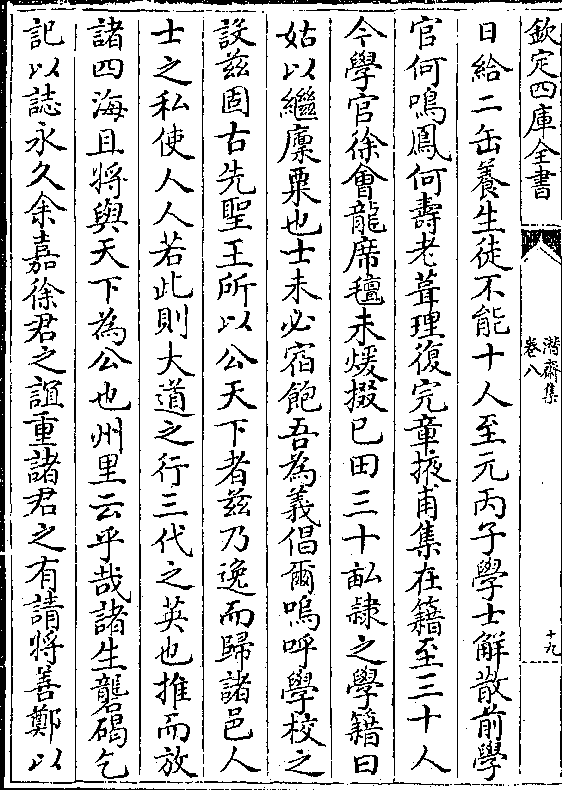 欽定四庫全書
潛齋集
卷八
十九
日給二缶養生徒不能十人至元丙子學士解散前學
官何鳴鳳何壽老葺理復完章掖甫集在籍至三十人
今學官徐會龍席氊未煖掇已田三十畝隸之學籍曰
姑以繼廪粟也士未必宿飽吾為義倡爾嗚呼學校之
設兹固古先聖王所以公天下者兹乃逸而歸諸邑人
士之私使人人若此則大道之行三代之英也推而放
諸四海且將與天下為公也州里云乎哉諸生礲碣乞
記以誌永久余嘉徐君之誼重諸君之有請將善鄭以